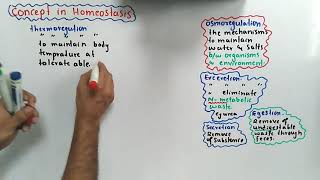 Concept in Homeostasis
thermoregulation
" " " "
to maintain body
tempdure at
tolerate able
osmoregulation
the mechanisms
to maintain
water & salts
b/w organisms
& environment
Excretion
" " " "
" eliminate
N₂ metabolic
waste
eg urea
Secretion
Remove of
Substance
Egestion
Remove of
undigestable
waste through
feces.